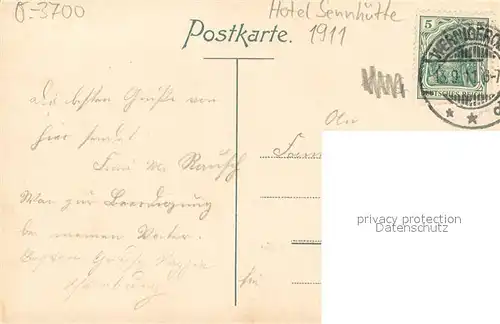 O-3700
Hotel Sennhütte
1911
Postkarte.
5
DEUTSCHES REICH
WERNIGERO
13.9.11.6-7
Die besten Grüße von
hier sendet
Frau M. Rausch
War zur Beerdigung
bei meinem Vater.
Grüße
Hamburg
An
privacy protection
Datenschutz